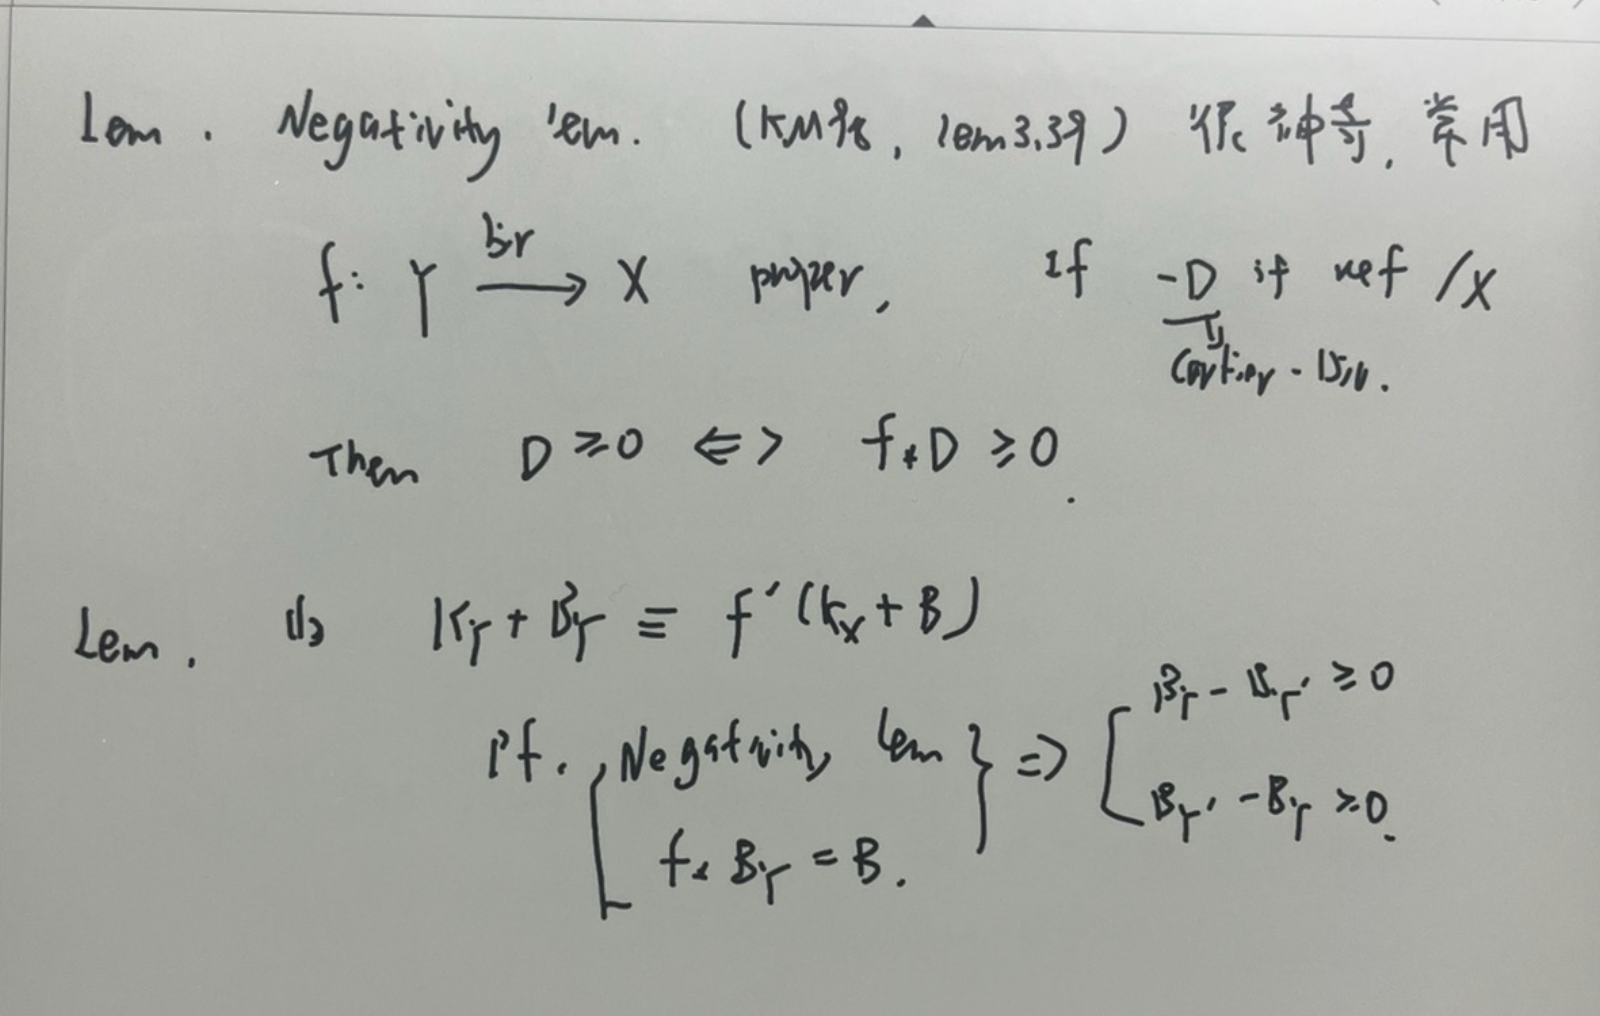 Lem. Negativity lem. (KM98, lem3.39) 很神奇, 常用
f: Y \xrightarrow{bir} X proper, If -D if nef /X
Cartier-Div.
Then D ≥ 0 <=> f_* D ≥ 0.
Lem. K_Y + B_Y ≡ f^*(K_X + B)
Pf. Negativity lem => B_Y - B_Y' ≥ 0
f_* B_Y = B. B_Y' - B_Y ≥ 0.